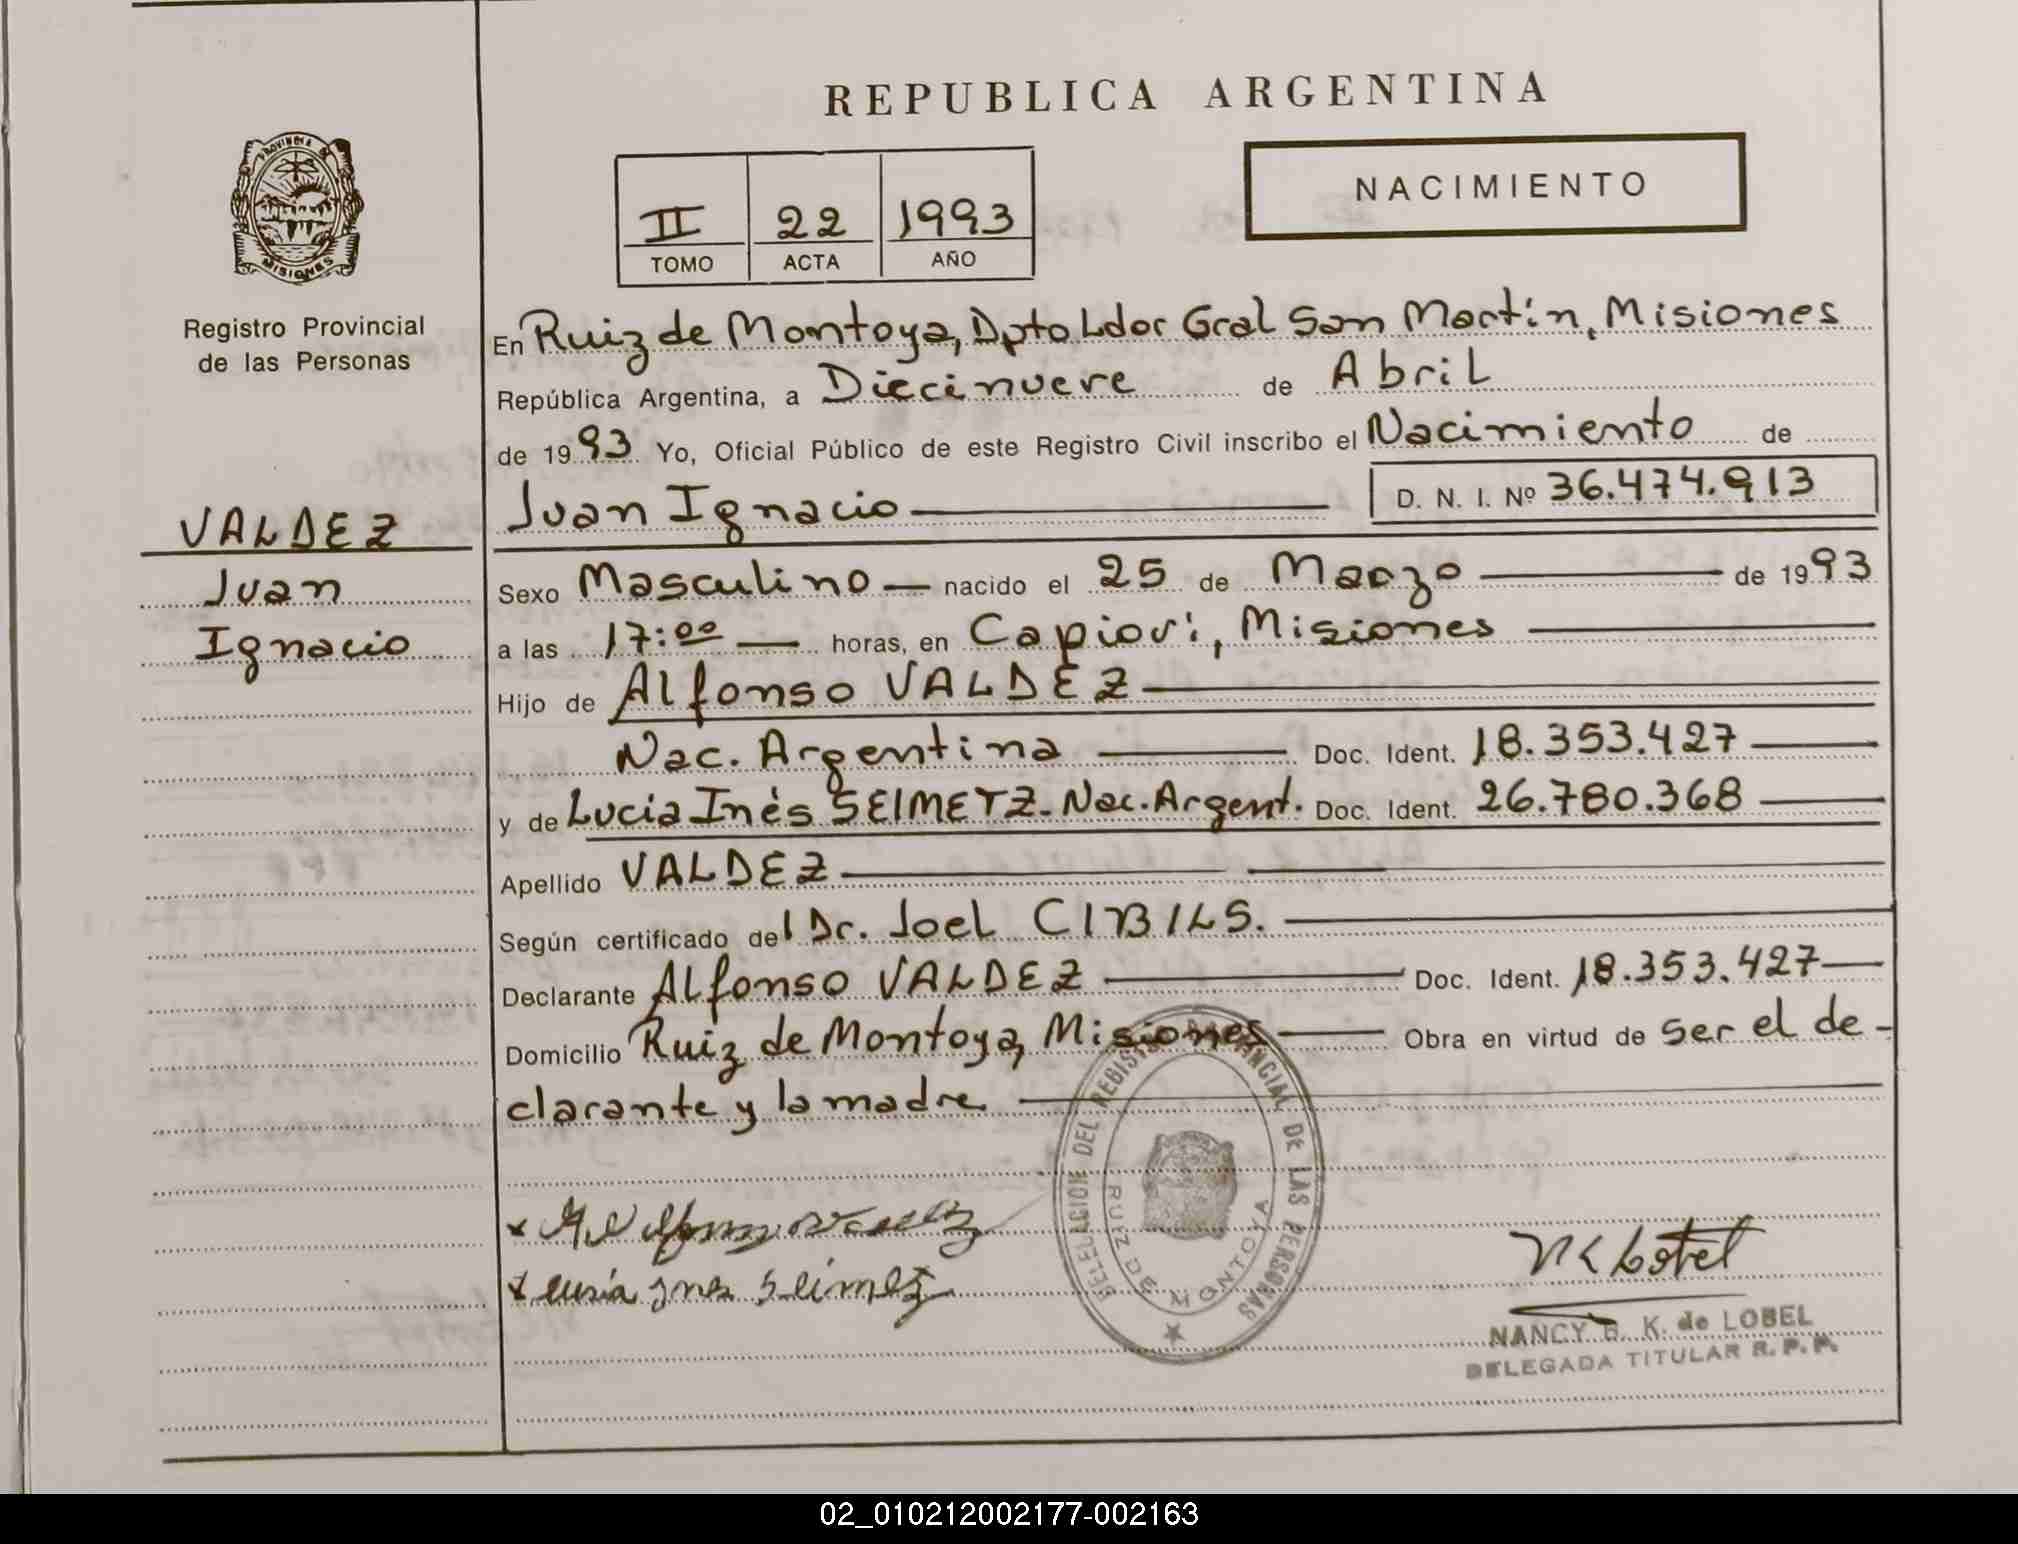 REPUBLICA ARGENTINA
PROVINCIA DE MISIONES
Registro Provincial
de las Personas
II 22 1993
TOMO ACTA AÑO
NACIMIENTO
En Ruiz de Montoya, Dpto Ldor Gral San Martín, Misiones
República Argentina, a Diecinueve de Abril
de 1993 Yo, Oficial Público de este Registro Civil inscribo el Nacimiento de
Juan Ignacio D. N. I. Nº 36.474.913
VALDEZ
Juan
Ignacio
Sexo Masculino nacido el 25 de Marzo de 1993
a las 17:00 horas, en Capioví, Misiones
Hijo de Alfonso VALDEZ
Nac. Argentina Doc. Ident. 18.353.427
y de Lucía Inés SEIMETZ - Nac. Argent. Doc. Ident. 26.780.368
Apellido VALDEZ
Según certificado del Dr. Joel CIBILS.
Declarante Alfonso VALDEZ Doc. Ident. 18.353.427
Domicilio Ruiz de Montoya, Misiones Obra en virtud de ser el de-
clarante y la madre
DELEGACION DEL REGISTRO PROVINCIAL DE LAS PERSONAS
RUIZ DE MONTOYA
NANCY K. de LOBEL
DELEGADA TITULAR R. P. P.
02_010212002177-002163